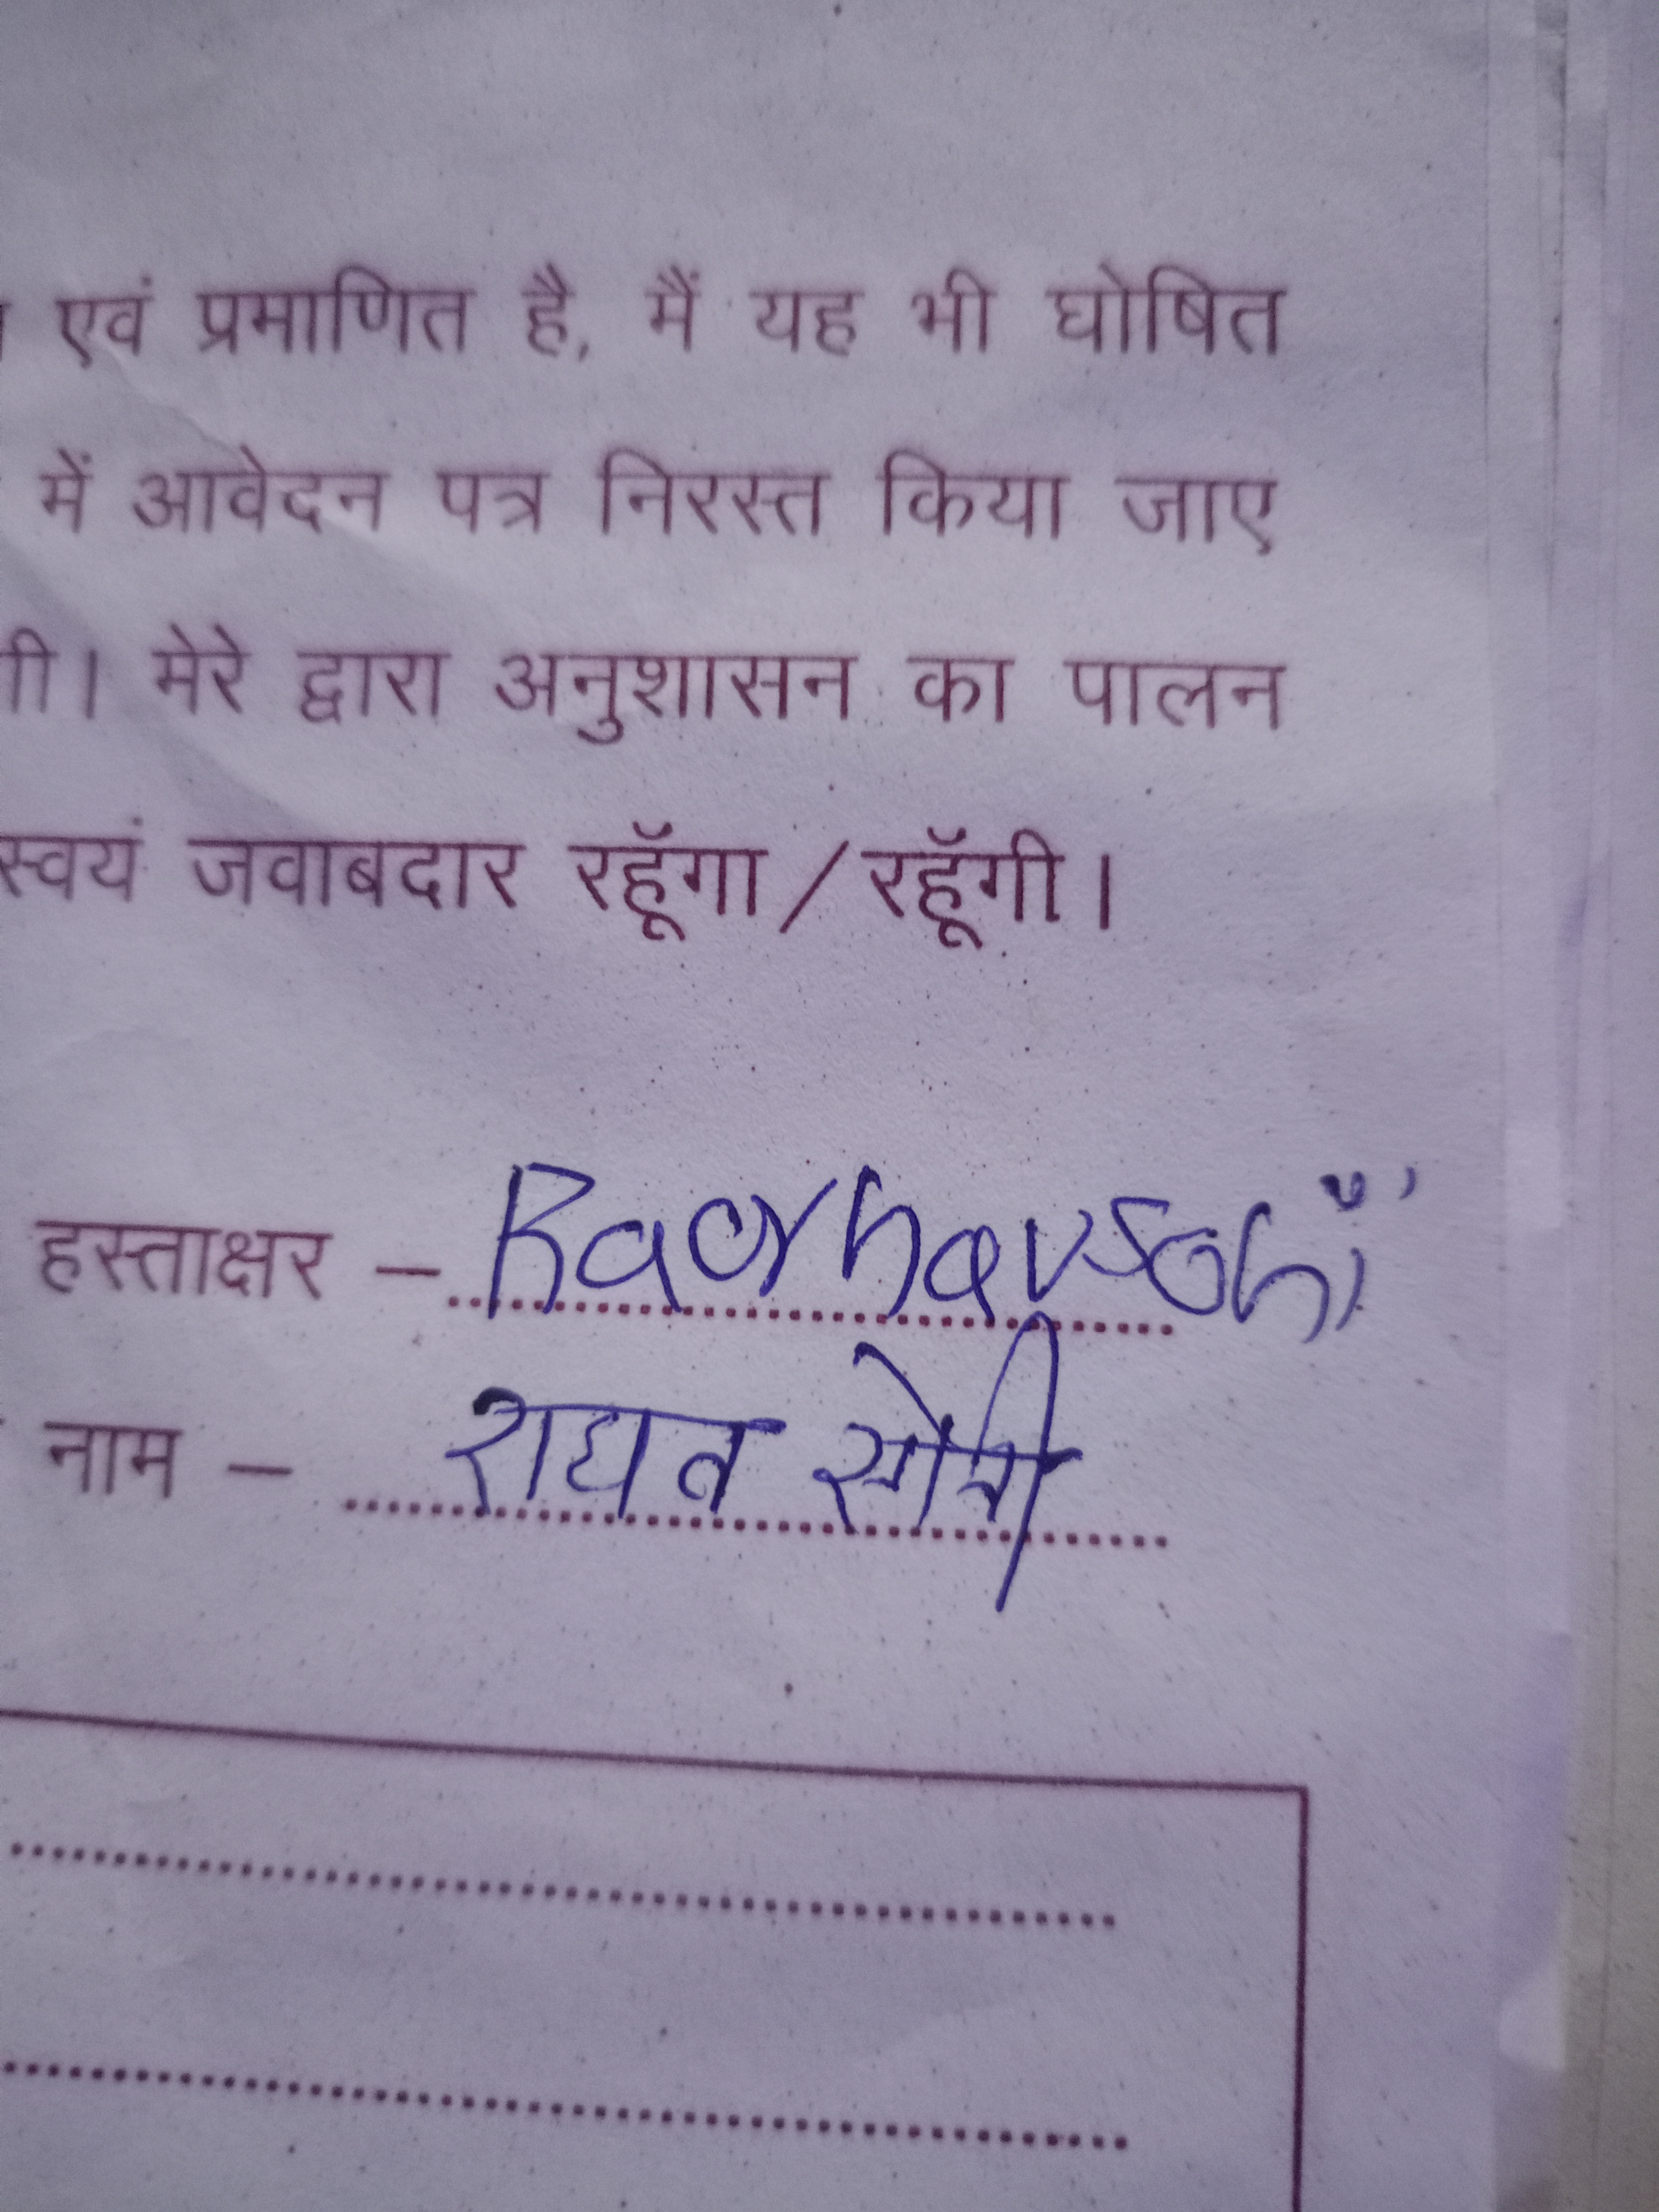 एवं प्रमाणित है, मैं यह भी घोषित
में आवेदन पत्र निरस्त किया जाए
गी। मेरे द्वारा अनुशासन का पालन
स्वयं जवाबदार रहूॅंगा/रहूॅंगी।
हस्ताक्षर –
नाम – राघव सोनी